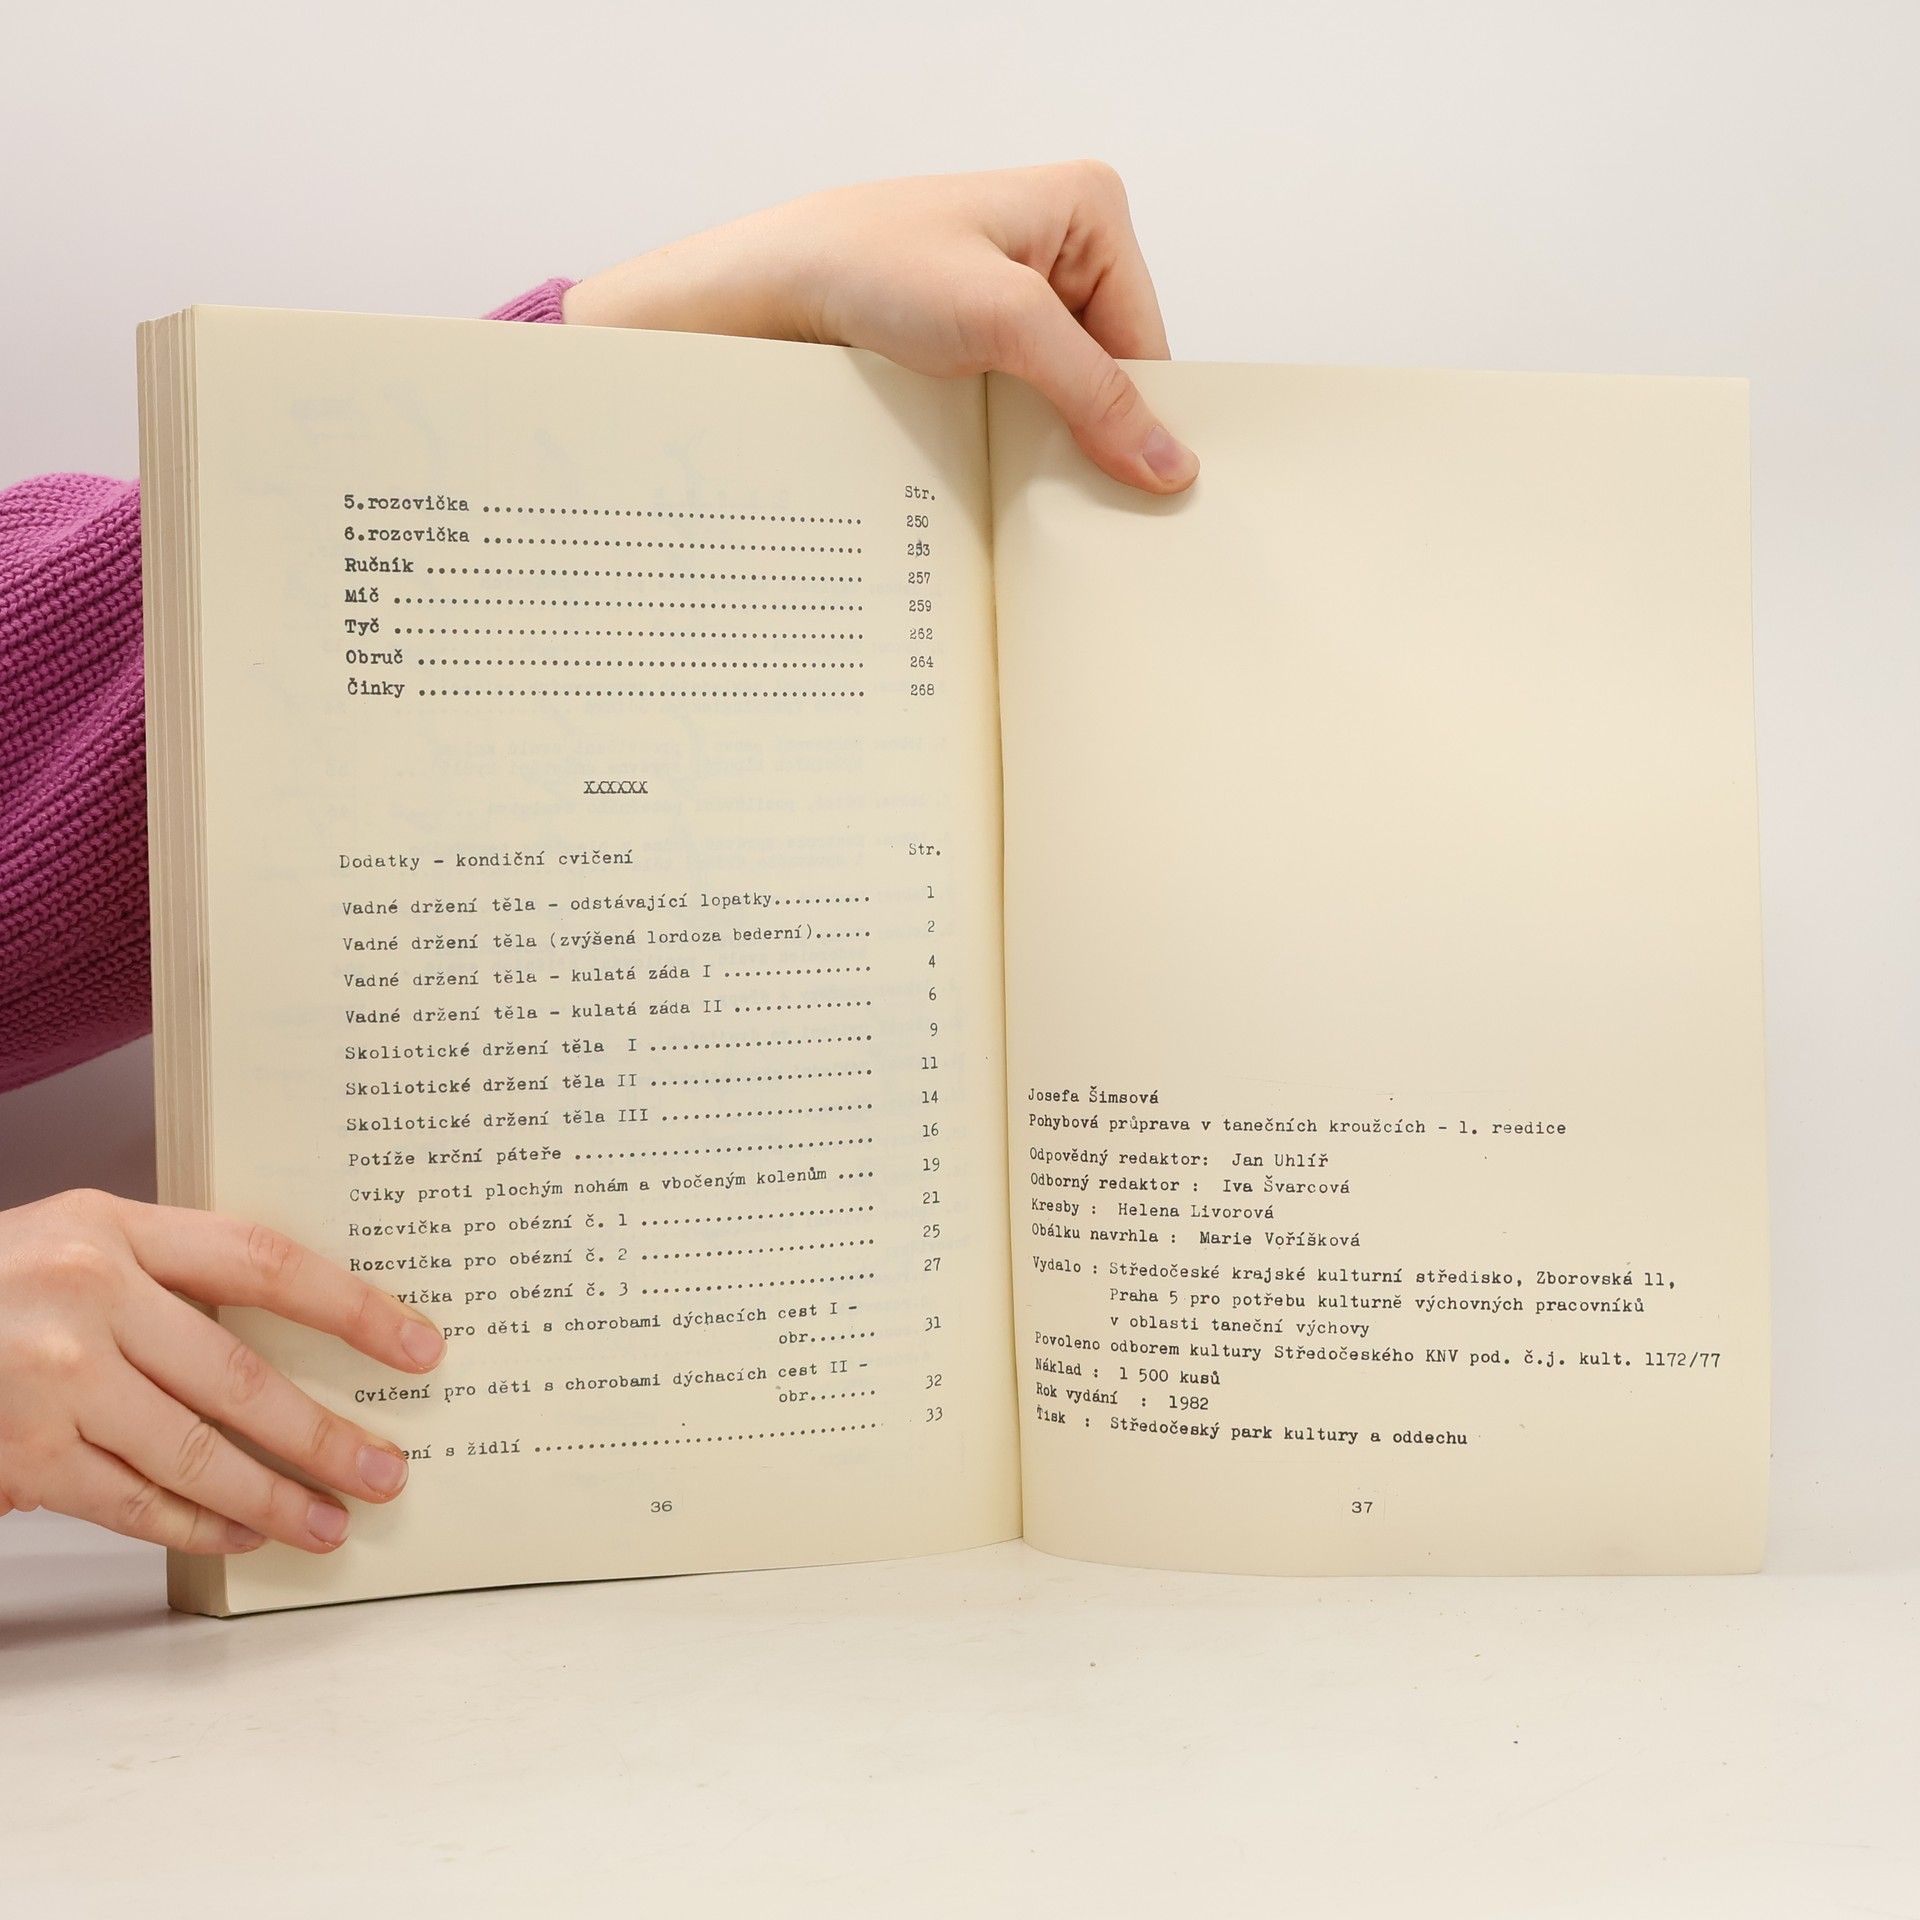 Str.
5.rozcvička ........................................ 250
6.rozcvička ........................................ 253
Ručník .............................................. 257
Míč ................................................. 259
Tyč ................................................. 262
Obruč ............................................... 264
Činky ............................................... 268
XXXXXX
Dodatky - kondiční cvičení Str.
Vadné držení těla - odstávající lopatky.......... 1
Vadné držení těla (zvýšená lordoza bederní)...... 2
Vadné držení těla - kulatá záda I ............... 4
Vadné držení těla - kulatá záda II .............. 6
Skoliotické držení těla I ...................... 9
Skoliotické držení těla II ...................... 11
Skoliotické držení těla III ..................... 14
Potíže krční páteře ............................. 16
Cviky proti plochým nohám a vbočeným kolenům .... 19
Rozcvička pro obézní č. 1 ....................... 21
Rozcvička pro obézní č. 2 ....................... 25
vička pro obézní č. 3 ....................... 27
pro děti s chorobami dýchacích cest I -
obr....... 31
Cvičení pro děti s chorobami dýchacích cest II -
obr....... 32
ení s židlí ................................. 33
36
Josefa Šimsová
Pohybová průprava v tanečních kroužcích - 1. reedice
Odpovědný redaktor: Jan Uhlíř
Odborný redaktor : Iva Švarcová
Kresby : Helena Livorová
Obálku navrhla : Marie Voříšková
Vydalo : Středočeské krajské kulturní středisko, Zborovská 11,
Praha 5 pro potřebu kulturně výchovných pracovníků
v oblasti taneční výchovy
Povoleno odborem kultury Středočeského KNV pod. č.j. kult. 1172/77
Náklad : 1 500 kusů
Rok vydání : 1982
Tisk : Středočeský park kultury a oddechu
37